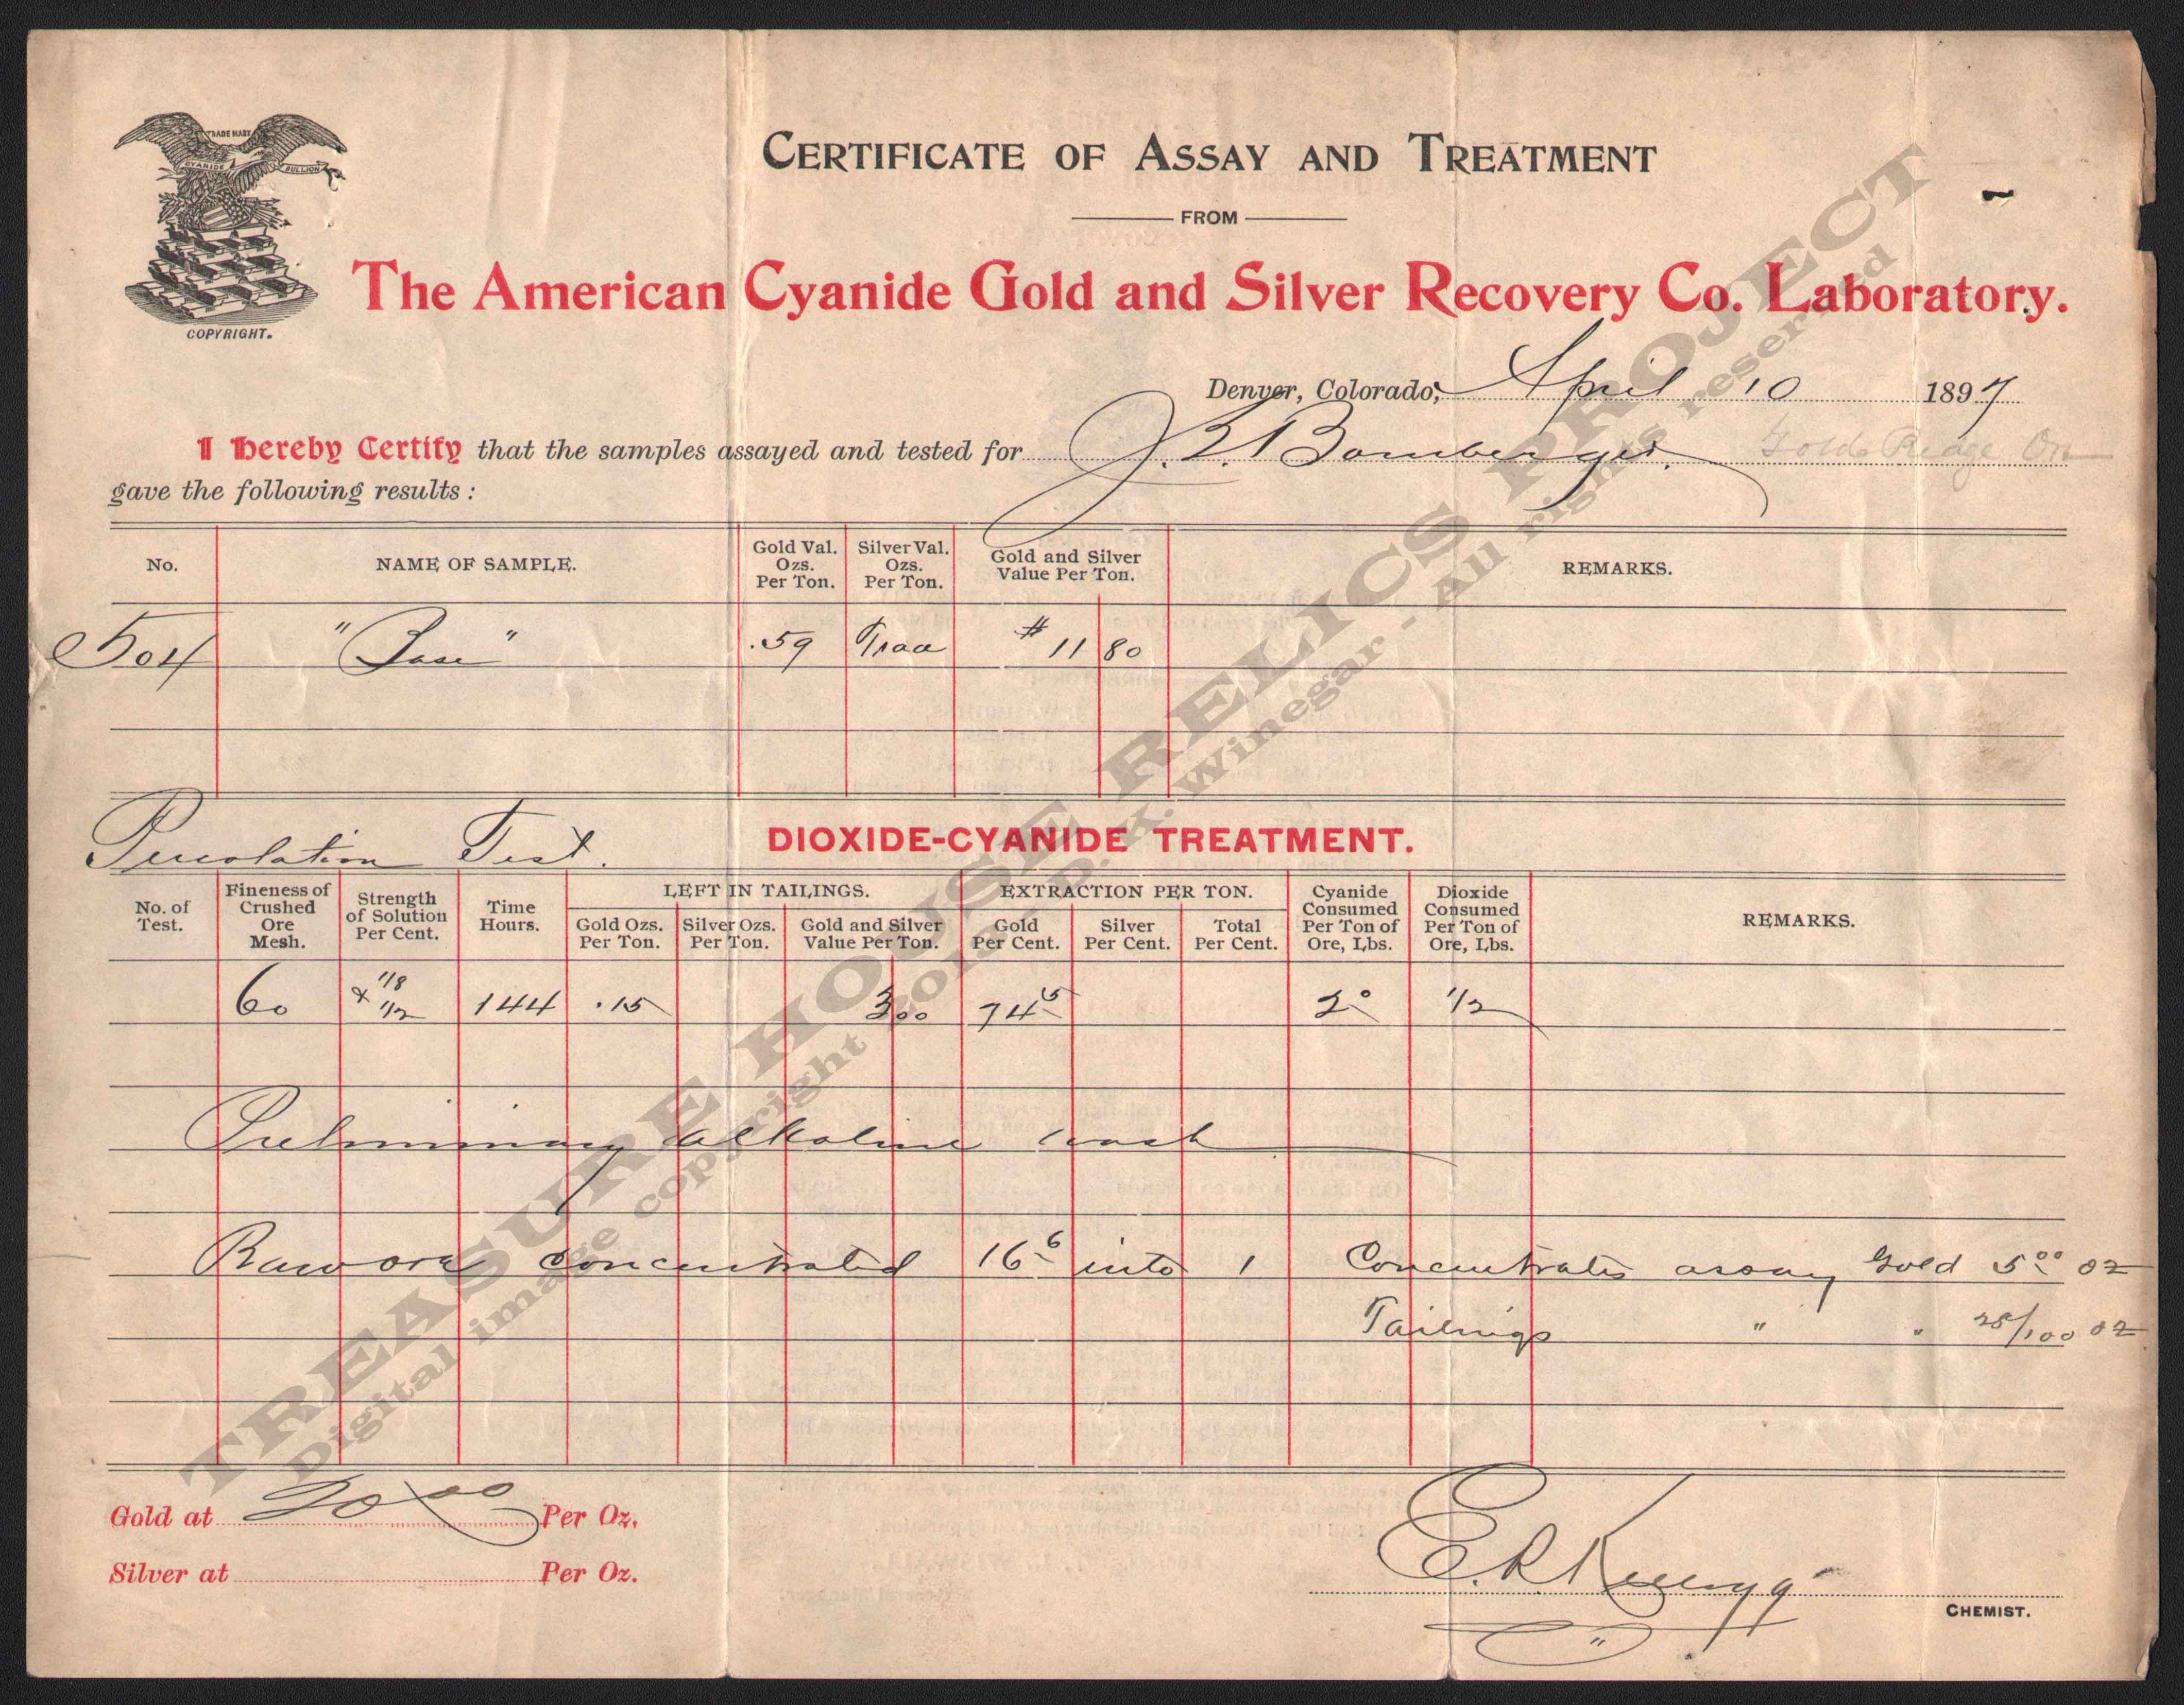 TRADE MARK
CYANIDE
BULLION
COPYRIGHT.
CERTIFICATE OF ASSAY AND TREATMENT
FROM
The American Cyanide Gold and Silver Recovery Co. Laboratory.
Denver, Colorado, April 10 1897
I hereby Certify that the samples assayed and tested for J. B. Bomberger. Gold Ridge
gave the following results :
No. NAME OF SAMPLE. Gold Val. Ozs. Per Ton. Silver Val. Ozs. Per Ton. Gold and Silver Value Per Ton. REMARKS.
504 .59 Trace $ 11 80
Percolation Test. DIOXIDE-CYANIDE TREATMENT.
LEFT IN TAILINGS. EXTRACTION PER TON.
No. of Test. Fineness of Crushed Ore Mesh. Strength of Solution Per Cent. Time Hours. Gold Ozs. Per Ton. Silver Ozs. Per Ton. Gold and Silver Value Per Ton. Gold Per Cent. Silver Per Cent. Total Per Cent. Cyanide Consumed Per Ton of Ore, Lbs. Dioxide Consumed Per Ton of Ore, Lbs. REMARKS.
60 1/8 & 1/2 144 .15 3 00 74 5 2 0 1/2
Preliminary alkaline wash
Raw ore concentrated 16 6 into 1 Concentrates assay Gold 5 00 oz
Tailings " " 25/100 oz
Gold at 20 00 Per Oz.
Silver at Per Oz.
CHEMIST.
TREASURE HOUSE RELICS PROJECT
Digital image copyright 2011 D. A. Winegar - All rights reserved